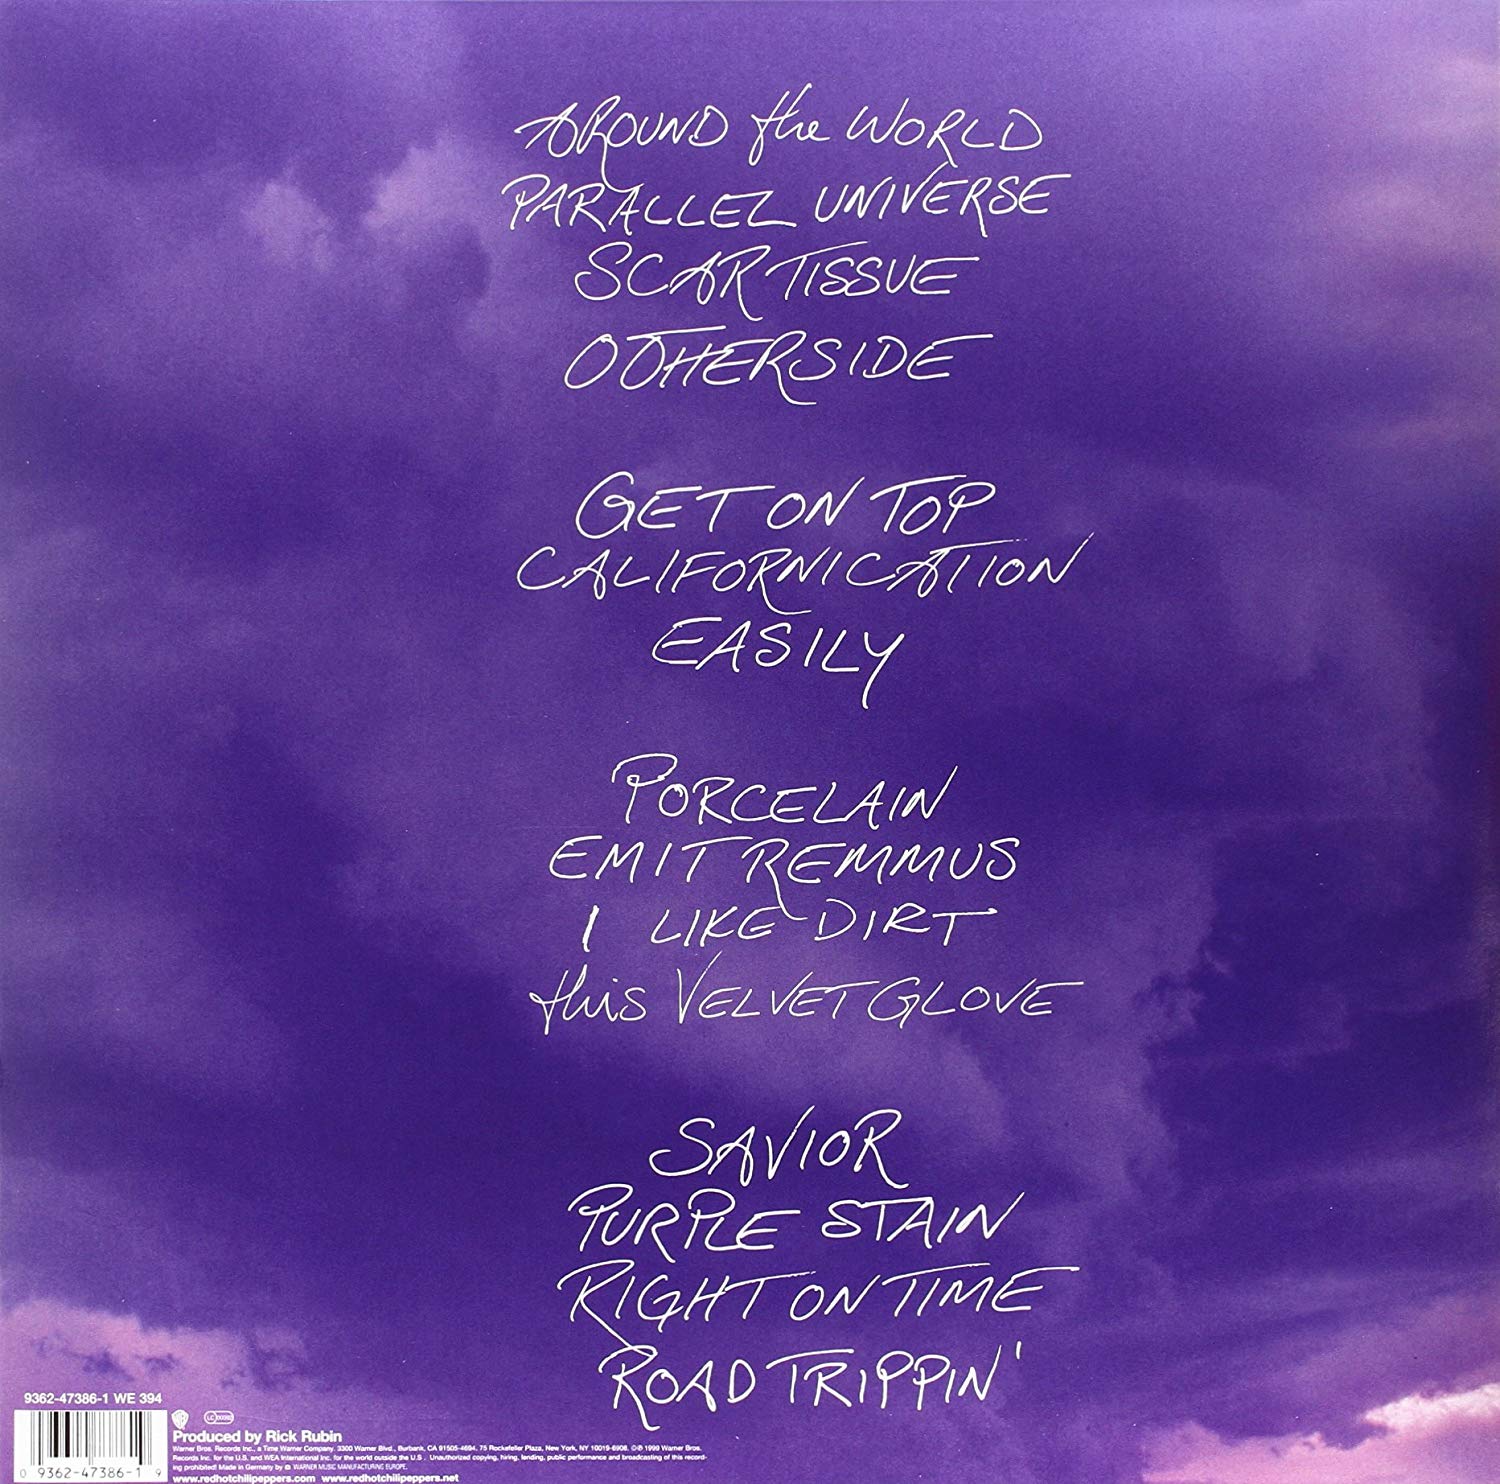 AROUND the WORLD
PARALLEL UNIVERSE
SCAR TISSUE
OTHERSIDE
GET ON TOP
CALIFORNICATION
EASILY
PORCELAIN
EMIT REMMUS
I LIKE DIRT
this VELVET GLOVE
SAVIOR
PURPLE STAIN
RIGHT ON TIME
ROAD TRIPPIN'
9362-47386-1 WE 394
0 9362-47386-1 9
Produced by Rick Rubin
Warner Bros. Records Inc., a Time Warner Company. 3300 Warner Blvd., Burbank, CA 91505-4694. 75 Rockefeller Plaza, New York, NY 10019-6908. ©℗ 1999 Warner Bros.
Records Inc. for the U.S. and WEA International Inc. for the world outside the U.S. Unauthorized copying, hiring, lending, public performance and broadcasting of this record-
ing prohibited! Made in Germany by WARNER MUSIC MANUFACTURING EUROPE.
www.redhotchilipeppers.com www.redhotchilipeppers.net